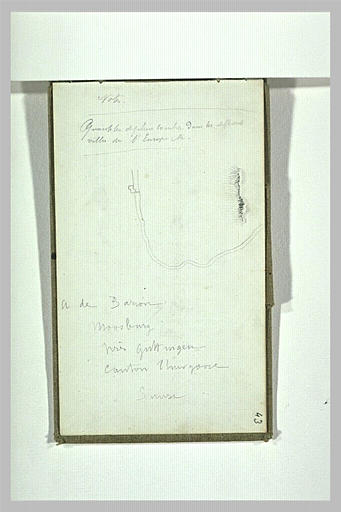 Note.
Quantité de pluie tombée dans les différentes
villes de l'Europe &c.
a de Baron
Moosburg
près Guttingen
Canton Thurgovie
Suisse
43